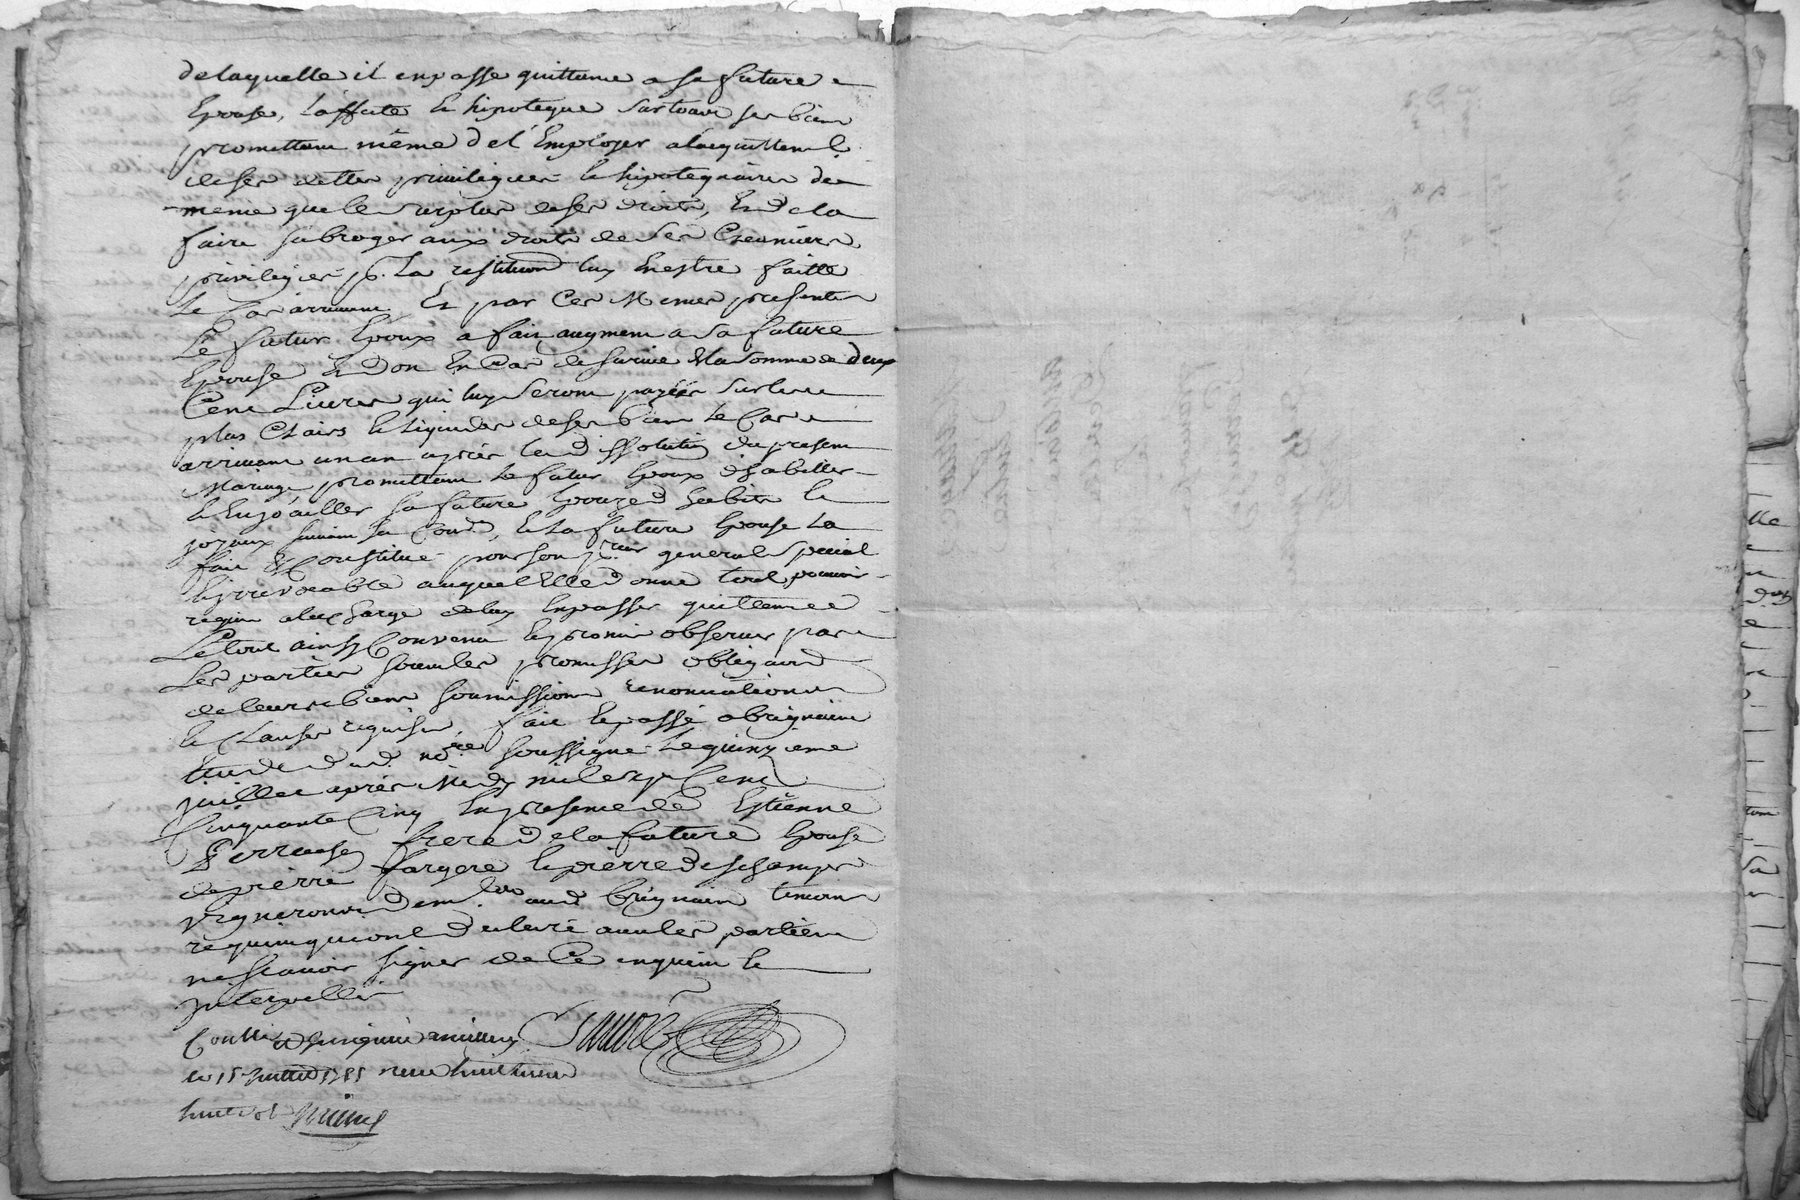 delaquelle il en passe quittance a sa future
Epouse, laffecte & hipoteque sur tous ses biens
promettant même de l'Employer alacquittemt.
de ses dettes privilegiées & hipotequaires de
meme que le surplus de ses droits, Et de la
faire subroger aux droits de ses Creanciers
privilegiés pr. La restitution luy En estre faitte
Le Cas arrivant Et par Ces Memes presentes
Le futur Epoux a fait augment a sa future
Epouse Et don En Cas de survie de la somme de deux
Cent Livres qui luy seront payées sur les
plus Clairs & liquides de ses biens Le Cas
arrivant un an après la dissolution du present
Mariage promettant Le futur Epoux d'habiller
& Enjoailler sa future Epouze d'habits &
joyaux suivant sa Condon, & La future Epouse La
fait & Constitué pour son pcur general special
& irrevocable auquel Elle donne tout pouvoir
requis ala Charge de luy En passer quittance
Le tout ainsy Convenu & promis observer par
Les parties sous les promesses obligaons
de leurs biens soumissions renonciations
& Clauses requises, fait & passé a brignais
Etude dud. nore soussigné Le quinzieme
juillet après Midy mil sept Cent
Cinquante Cinq En presence de Estienne
frere de la future Epouse
de pierre fargere & pierre deschamps
vignerons demts. aud brignais temoins
requis qui ont declaré avec les parties
ne scavoir signer de Ce enquis &
interpellés
le 15 juillet 1755